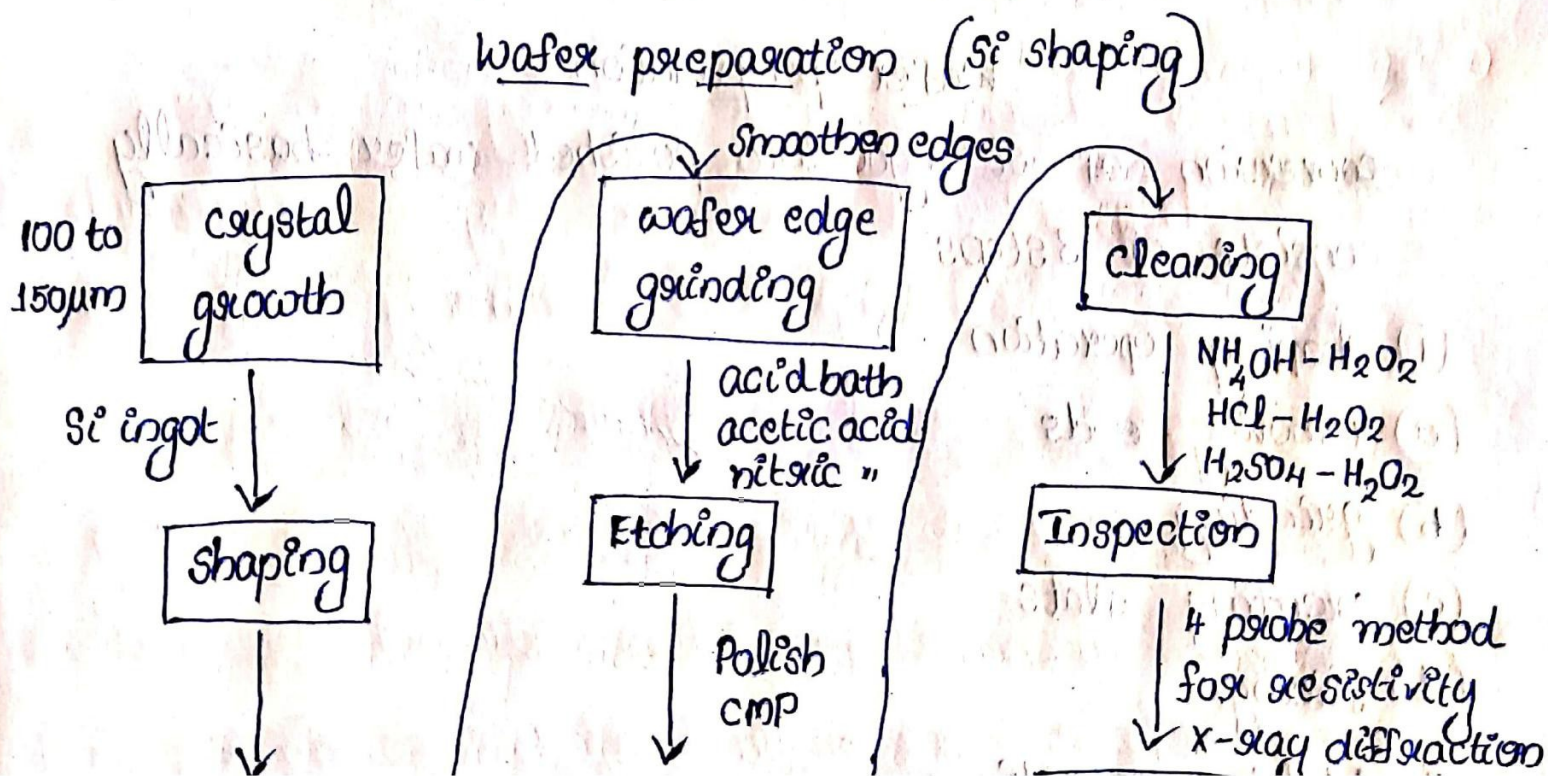 Wafer preparation (Si shaping)
100 to
150μm
crystal
growth
Si ingot
shaping
Smoothen edges
wafer edge
grinding
acid bath
acetic acid
nitric "
Etching
Polish
CMP
cleaning
NH4OH - H2O2
HCl - H2O2
H2SO4 - H2O2
Inspection
4 probe method
for resistivity
X-ray diffraction